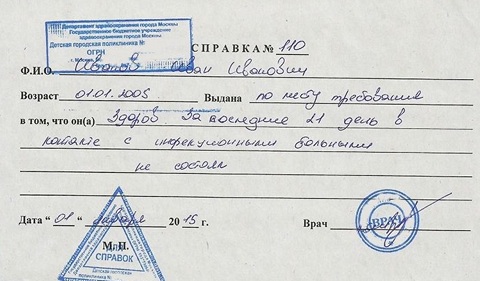 Департамент здравоохранения города Москвы
Государственное бюджетное учреждение
здравоохранения города Москвы
Детская городская поликлиника №
ОГРН
г. Москва,
СПРАВКА № 110
Ф.И.О. Иванов Иван Иванович
Возраст 01.01.2005 Выдана по месту требования
в том, что он(а) Здоров За последние 21 день в
контакте с инфекционными больными
не состоял
Дата "01" января 2015 г. Врач
ВРАЧ
М.П.
ДЛЯ
СПРАВОК
Детская городская
поликлиника №